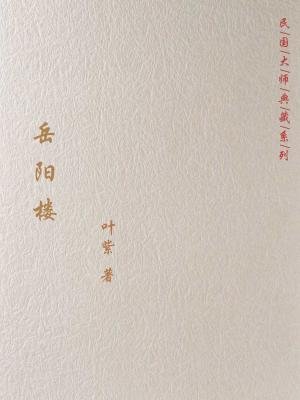 民国大师典藏系列
岳阳楼
叶紫 著